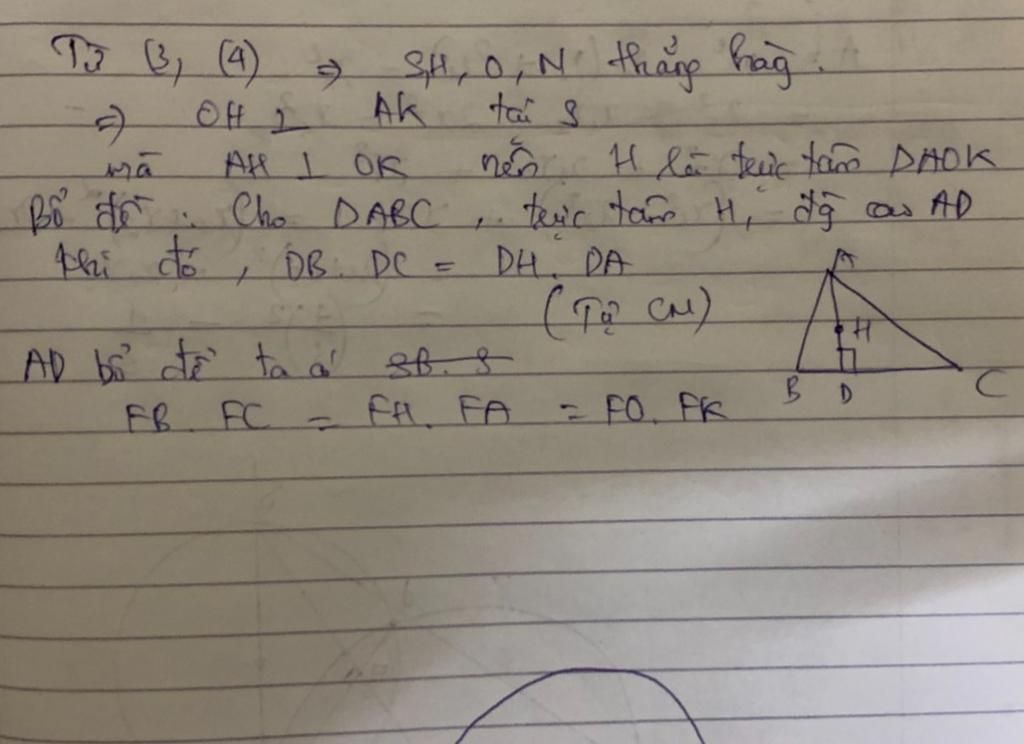 Từ (3, (4) => S,H, O, N thẳng hàg.
=> OH ⊥ AK tại S
mà AH ⊥ OK nên H là trực tâm ΔAOK
Bổ đề: Cho ΔABC, trực tâm H, đg cao AD
Khi đó, DB. DC = DH. DA
(Tự CM)
AD bổ đề ta có SB. S
FB. FC = FH. FA = FO. FK
A
H
B D C